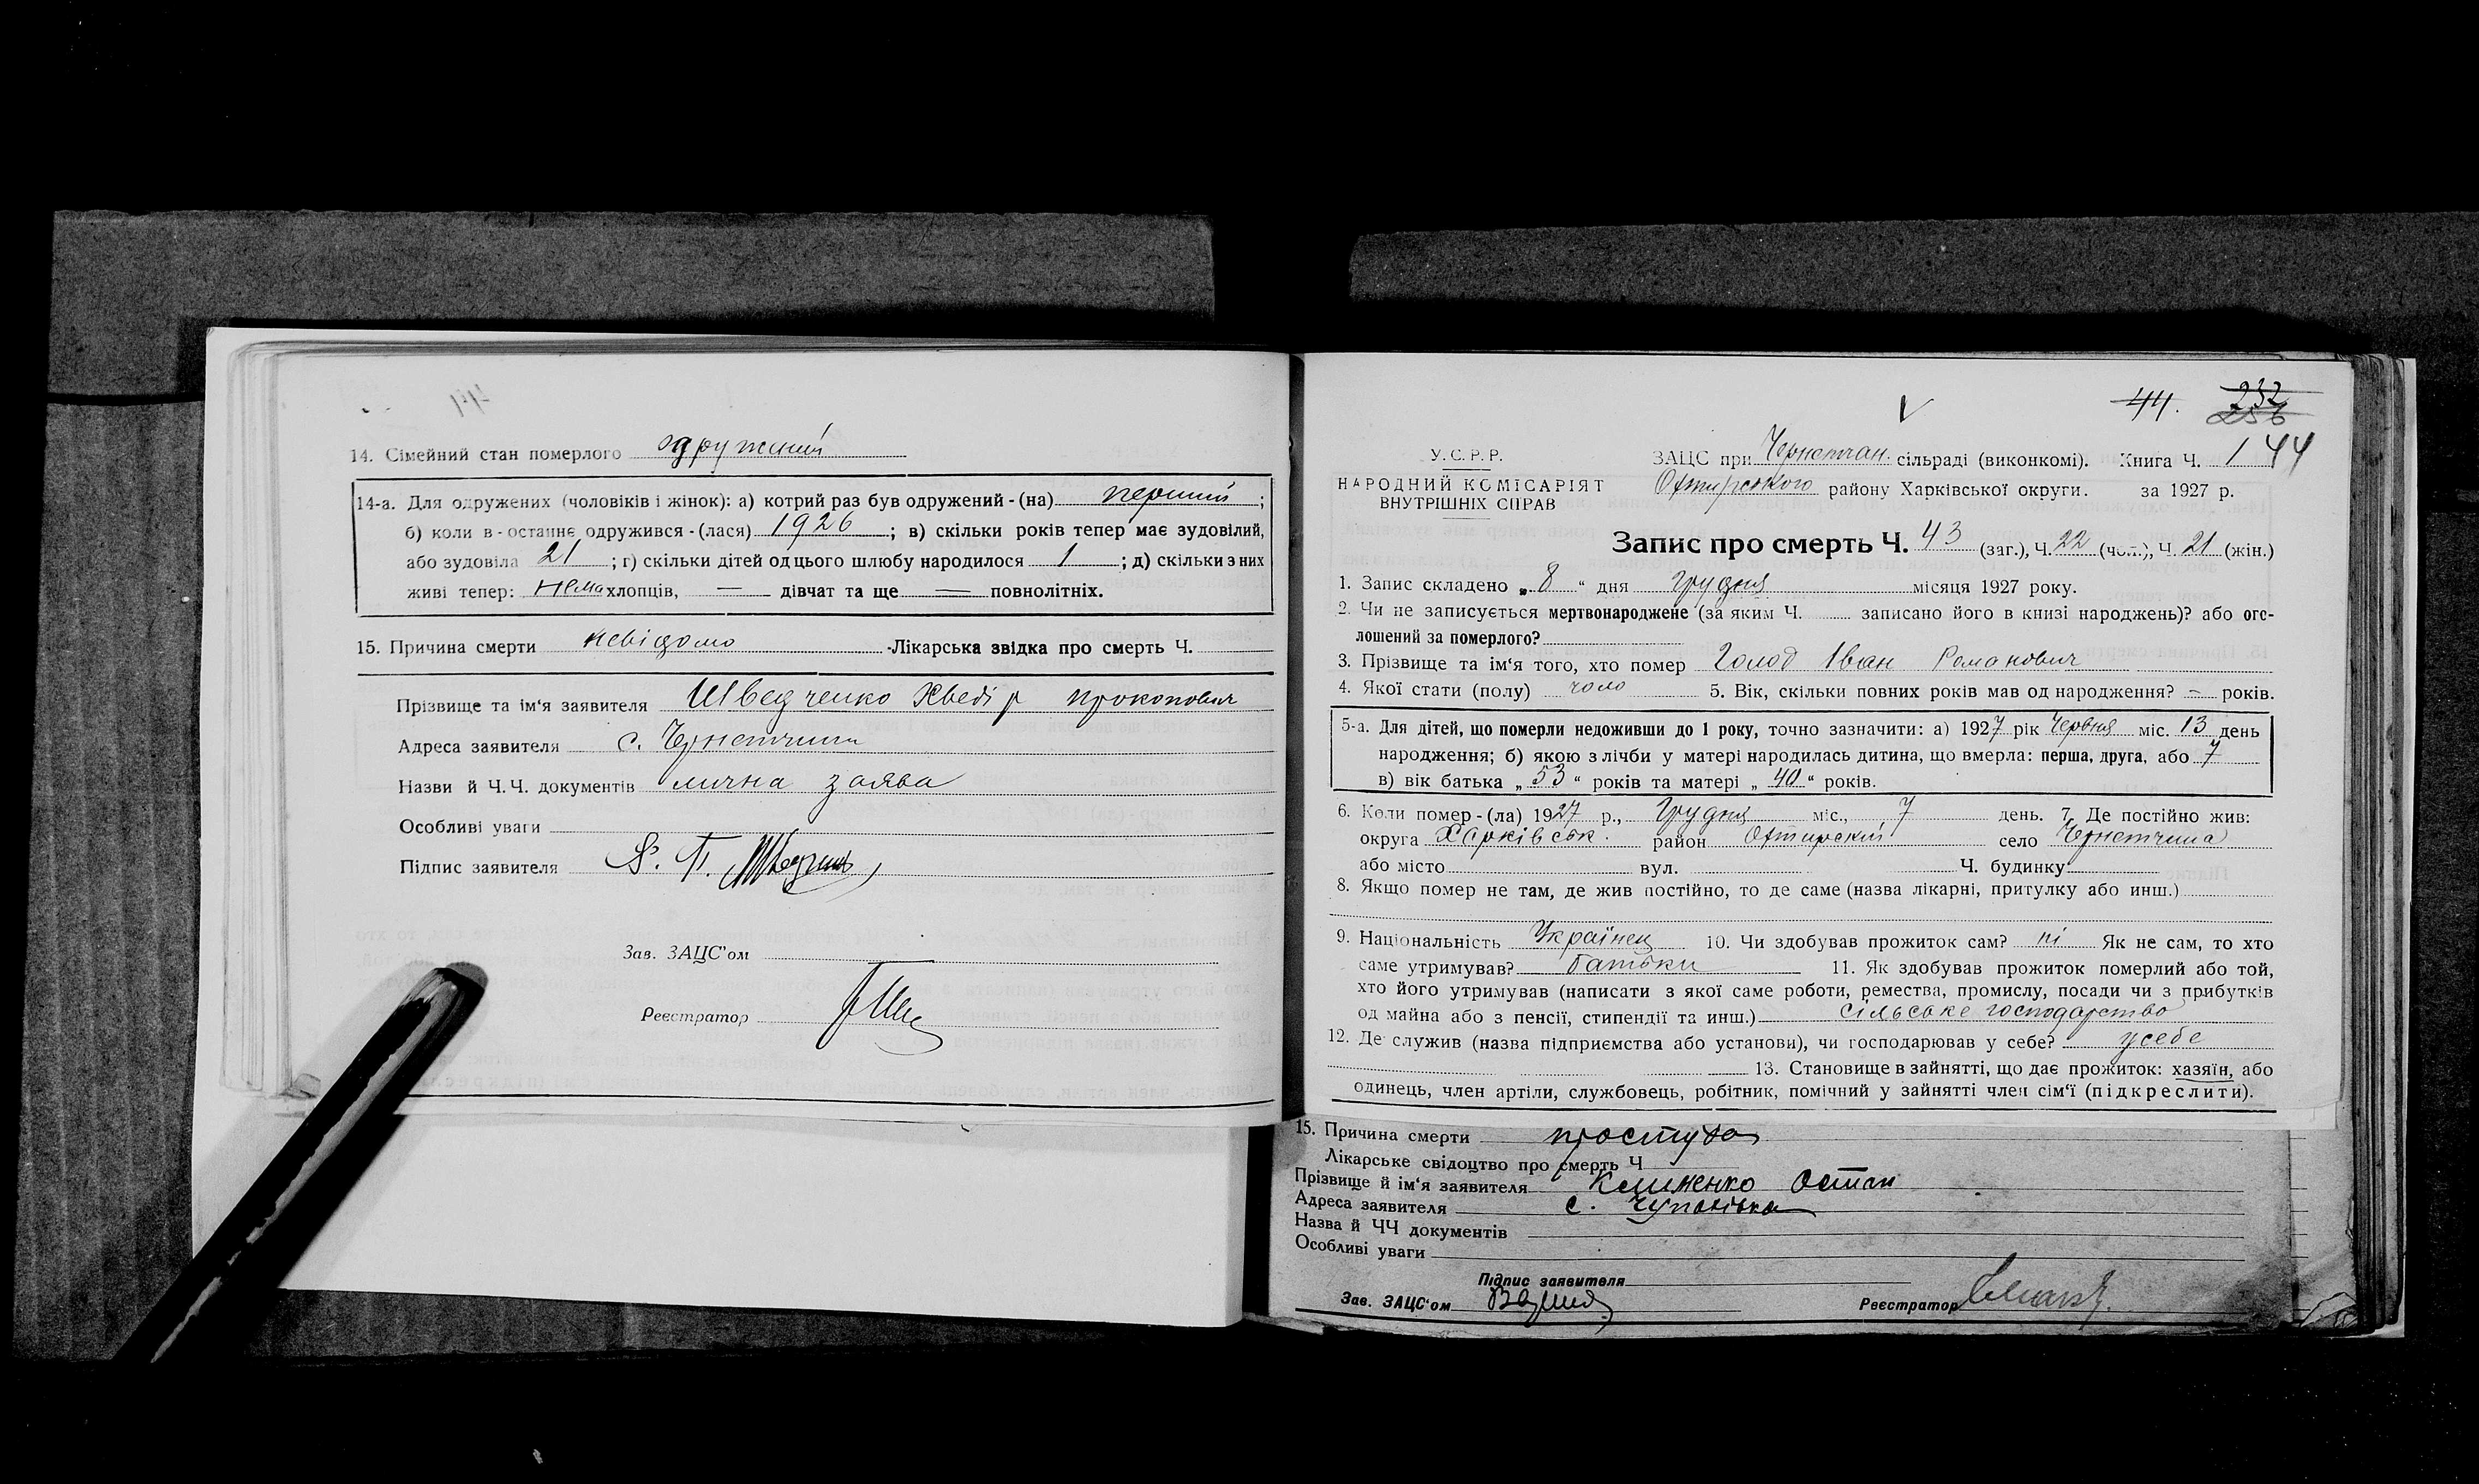 14. Сімейний стан померлого одружений
14-а. Для одружених (чоловіків і жінок): а) котрий раз був одружений - (на) перший ;
б) коли в - останнє одружився - (лася) 1926 ; в) скільки років тепер має зудовілий,
або зудовіла 21 ; г) скільки дітей од цього шлюбу народилося 1 ; д) скільки з них
живі тепер: нема хлопців, — дівчат та ще — повнолітніх.
15. Причина смерти невідомо -Лікарська звідка про смерть Ч.
Прізвище та ім'я заявителя Шведченко Хведір Прокопович
Адреса заявителя с. Чернетчина
Назви й Ч.Ч. документів лична заява
Особливі уваги
Підпис заявителя
Зав. ЗАЦС'ом
Реєстратор
44. 232
256
У.С.Р.Р.
НАРОДНИЙ КОМІСАРІЯТ
ВНУТРІШНІХ СПРАВ
ЗАЦС при Чернетчан. сільраді (виконкомі). Книга Ч. 144
Охтирського району Харківської округи. за 1927 р.
Запис про смерть Ч. 43 (заг.), Ч. 22 (чол.), Ч. 21 (жін.)
1. Запис складено „ 8 “ дня грудня місяця 1927 року.
2. Чи не записується мертвонароджене (за яким Ч. записано його в книзі народжень)? або ого-
лошений за померлого?
3. Прізвище та ім'я того, хто помер Голод Іван Романович
4. Якої стати (полу) чоло 5. Вік, скільки повних років мав од народження? – років.
5-а. Для дітей, що померли недоживши до 1 року, точно зазначити: а) 1927 рік Червня міс. 13 день
народження; б) якою з лічби у матері народилась дитина, що вмерла: перша, друга, або 7
в) вік батька „ 53 “ років та матері „ 40 “ років.
6. Коли помер - (ла) 1927 р., грудня міс., 7 день. 7. Де постійно жив:
округа Харківськ. район Охтирский село Чернетчина
або місто вул. Ч. будинку
8. Якщо помер не там, де жив постійно, то де саме (назва лікарні, притулку або инш.)
9. Національність Українец 10. Чи здобував прожиток сам? ні Як не сам, то хто
саме утримував? батьки 11. Як здобував прожиток померлий або той,
хто його утримував (написати з якої саме роботи, ремества, промислу, посади чи з прибутків
од майна або з пенсії, стипендії та инш.) сільське господарство
12. Де служив (назва підприємства або установи), чи господарював у себе? усебе
13. Становище в зайнятті, що дає прожиток: хазяїн, або
одинець, член артіли, службовець, робітник, помічний у зайнятті член сім'ї (підкреслити).
15. Причина смерти простуда
Лікарське свідоцтво про смерть Ч
Прізвище й ім'я заявителя Клименко Остап
Адреса заявителя с. Чупахівка
Назва й ЧЧ документів
Особливі уваги
Підпис заявителя
Зав. ЗАЦС'ом Реєстратор